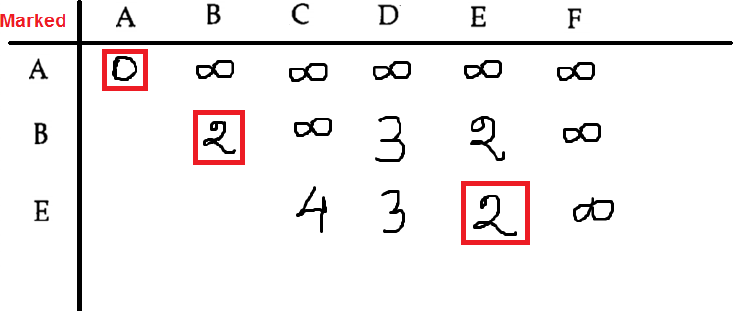 Marked A B C D E F
A 0 ∞ ∞ ∞ ∞ ∞
B 2 ∞ 3 2 ∞
E 4 3 2 ∞